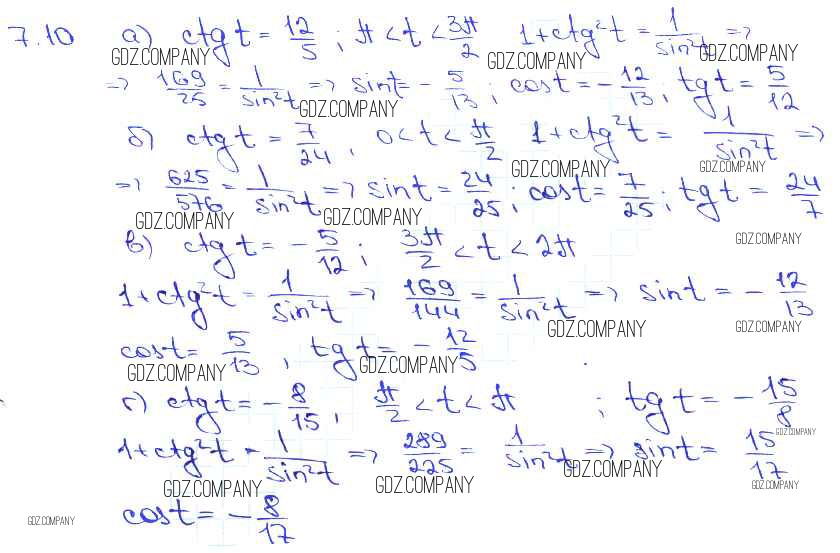 7.10 а) ctg t = 12/5 ; π < t < 3π/2 1 + ctg²t = 1/sin²t =>
GDZ.COMPANY GDZ.COMPANY GDZ.COMPANY
=> 169/25 = 1/sin²t => sint = - 5/13 ; cost = - 12/13 ; tg t = 5/12
GDZ.COMPANY
б) ctg t = 7/24 , 0 < t < π/2 1 + ctg²t = 1/sin²t =>
GDZ.COMPANY GDZ.COMPANY
=> 625/576 = 1/sin²t => sint = 24/25 ; cost = 7/25 ; tg t = 24/7
GDZ.COMPANY GDZ.COMPANY
GDZ.COMPANY
в) ctg t = - 5/12 ; 3π/2 < t < 2π
1 + ctg²t = 1/sin²t => 169/144 = 1/sin²t => sint = - 12/13
GDZ.COMPANY GDZ.COMPANY
cost = 5/13 , tg t = - 12/5
GDZ.COMPANY GDZ.COMPANY
г) ctg t = - 8/15 , π/2 < t < π ; tg t = - 15/8
GDZ.COMPANY
1 + ctg²t = 1/sin²t => 289/225 = 1/sin²t => sint = 15/17
GDZ.COMPANY GDZ.COMPANY GDZ.COMPANY GDZ.COMPANY
cost = - 8/17
GDZ.COMPANY